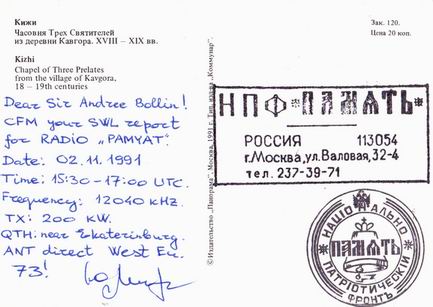 Кижи
Часовня Трех Святителей
из деревни Кавгора. XVIII – XIX вв.
Kizhi
Chapel of Three Prelates
from the village of Kavgora,
18 – 19th centuries
Зак. 120.
Цена 20 коп.
Dear Sir Andree Bollin!
CFM your SWL report
for RADIO „PAMYAT".
Date: 02.11.1991
Time: 15:30-17:00 UTC.
Frequency: 12040 kHz.
TX: 200 KW.
QTH: near Ekaterinburg.
ANT direct West Eu.
73!
© Издательство „Панорама". Москва, 1991 г. Тип. изд-ва „Коммунар".
НПФ „ПАМЯТЬ"
РОССИЯ 113054
г. Москва, ул. Валовая, 32-4
тел. 237-39-71
НАЦИОНАЛЬНО
ПАМЯТЬ
ПАТРІОТИЧЕСКІЙ
ФРОНТЪ